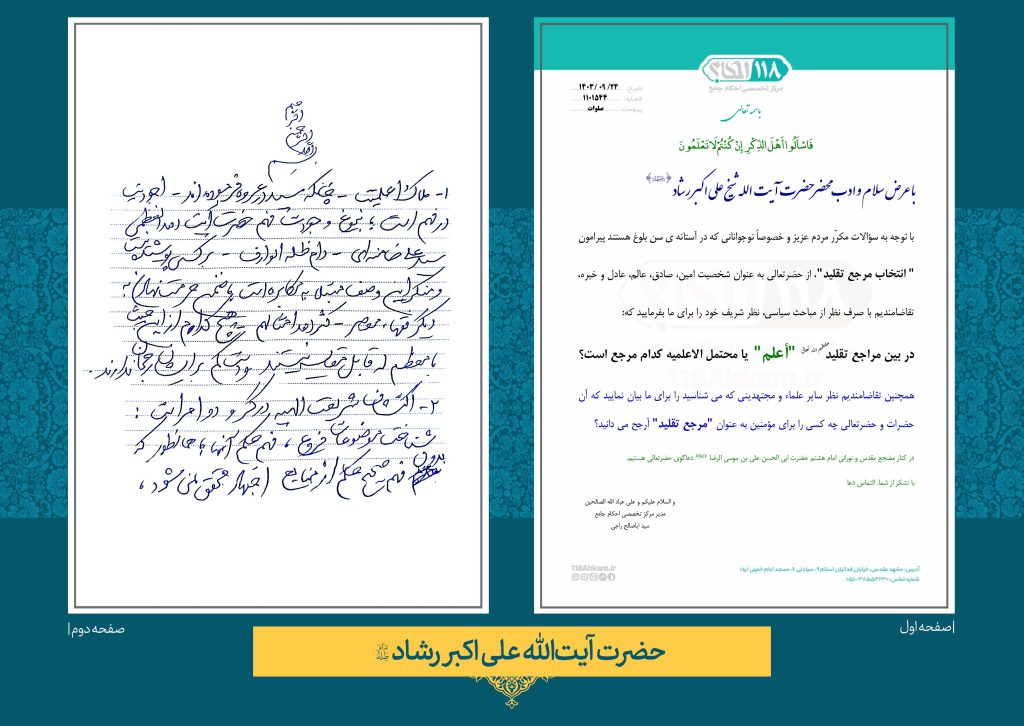 ۱۱۸ احکام
مرکز تخصصی احکام جامع
تاریخ: ۱۴۰۳/۰۹/۲۴
شماره: ۱۱۰۱۵۴۴
پیوست: صلوات
باسمه تعالی
فَاسْأَلُوا أَهْلَ الذِّكْرِ إِنْ كُنْتُمْ لَا تَعْلَمُونَ
با عرض سلام و ادب محضر حضرت آیت الله شیخ علی اکبر رشاد
با توجه به سؤالات مکرّر مردم عزیز و خصوصاً نوجوانانی که در آستانه ی سن بلوغ هستند پیرامون
" انتخاب مرجع تقلید"، از حضرتعالی به عنوان شخصیت امین، صادق، عالم، عادل و خبره،
تقاضامندیم با صرف نظر از مباحث سیاسی، نظر شریف خود را برای ما بفرمایید که:
در بین مراجع تقلید "أعلم" یا محتمل الاعلمیه کدام مرجع است؟
118Ahkam.ir
همچنین تقاضامندیم نظر سایر علماء و مجتهدینی که می شناسید را برای ما بیان نمایید که آن
حضرات و حضرتعالی چه کسی را برای مؤمنین به عنوان "مرجع تقلید" أرجح می دانید؟
در کنار مضجع مقدس و نورانی امام هشتم حضرت ابی الحسن علی بن موسی الرضا دعاگوی حضرتعالی هستیم.
با تشکر از شما. التماس دعا
و السلام علیکم و علی عباد الله الصالحین
مدیر مرکز تخصصی احکام جامع
سید اباصالح راجی
118Ahkam.ir
آدرس: مشهد مقدس، خیابان فدائیان اسلام۹، سیادتی ۶، مسجد امام خمینی (ره)
شماره تماس: ۳۸۵۵۲۲۳۰-۰۵۱
صفحه اول
۱- ملاک اعلمیت - چنانکه سید در عروه فرموده اند - اجودیت
در فهم است؛ نبوغ و جودت فهم حضرت آیت الله العظمی
سید علی خامنه‌ای - دام ظله الوارف - بر کسی پوشیده نیست
و منکر این وصف مبتلا به مکابره است
دیگر فقهاء معاصر - کثر الله امثالهم - هیچ کدام از این حیث
با معظم له قابل قیاس نیستند و
۲- اکتشاف شریعت الهیه در گرو دو امر است:
شناخت موضوعات فروع، فهم حکم آنها؛ همانطور که
بدون فهم صحیح حکم از منابع اجتهاد محقق نمی شود،
صفحه دوم
حضرت آیت‌الله علی اکبر رشاد دام ظله